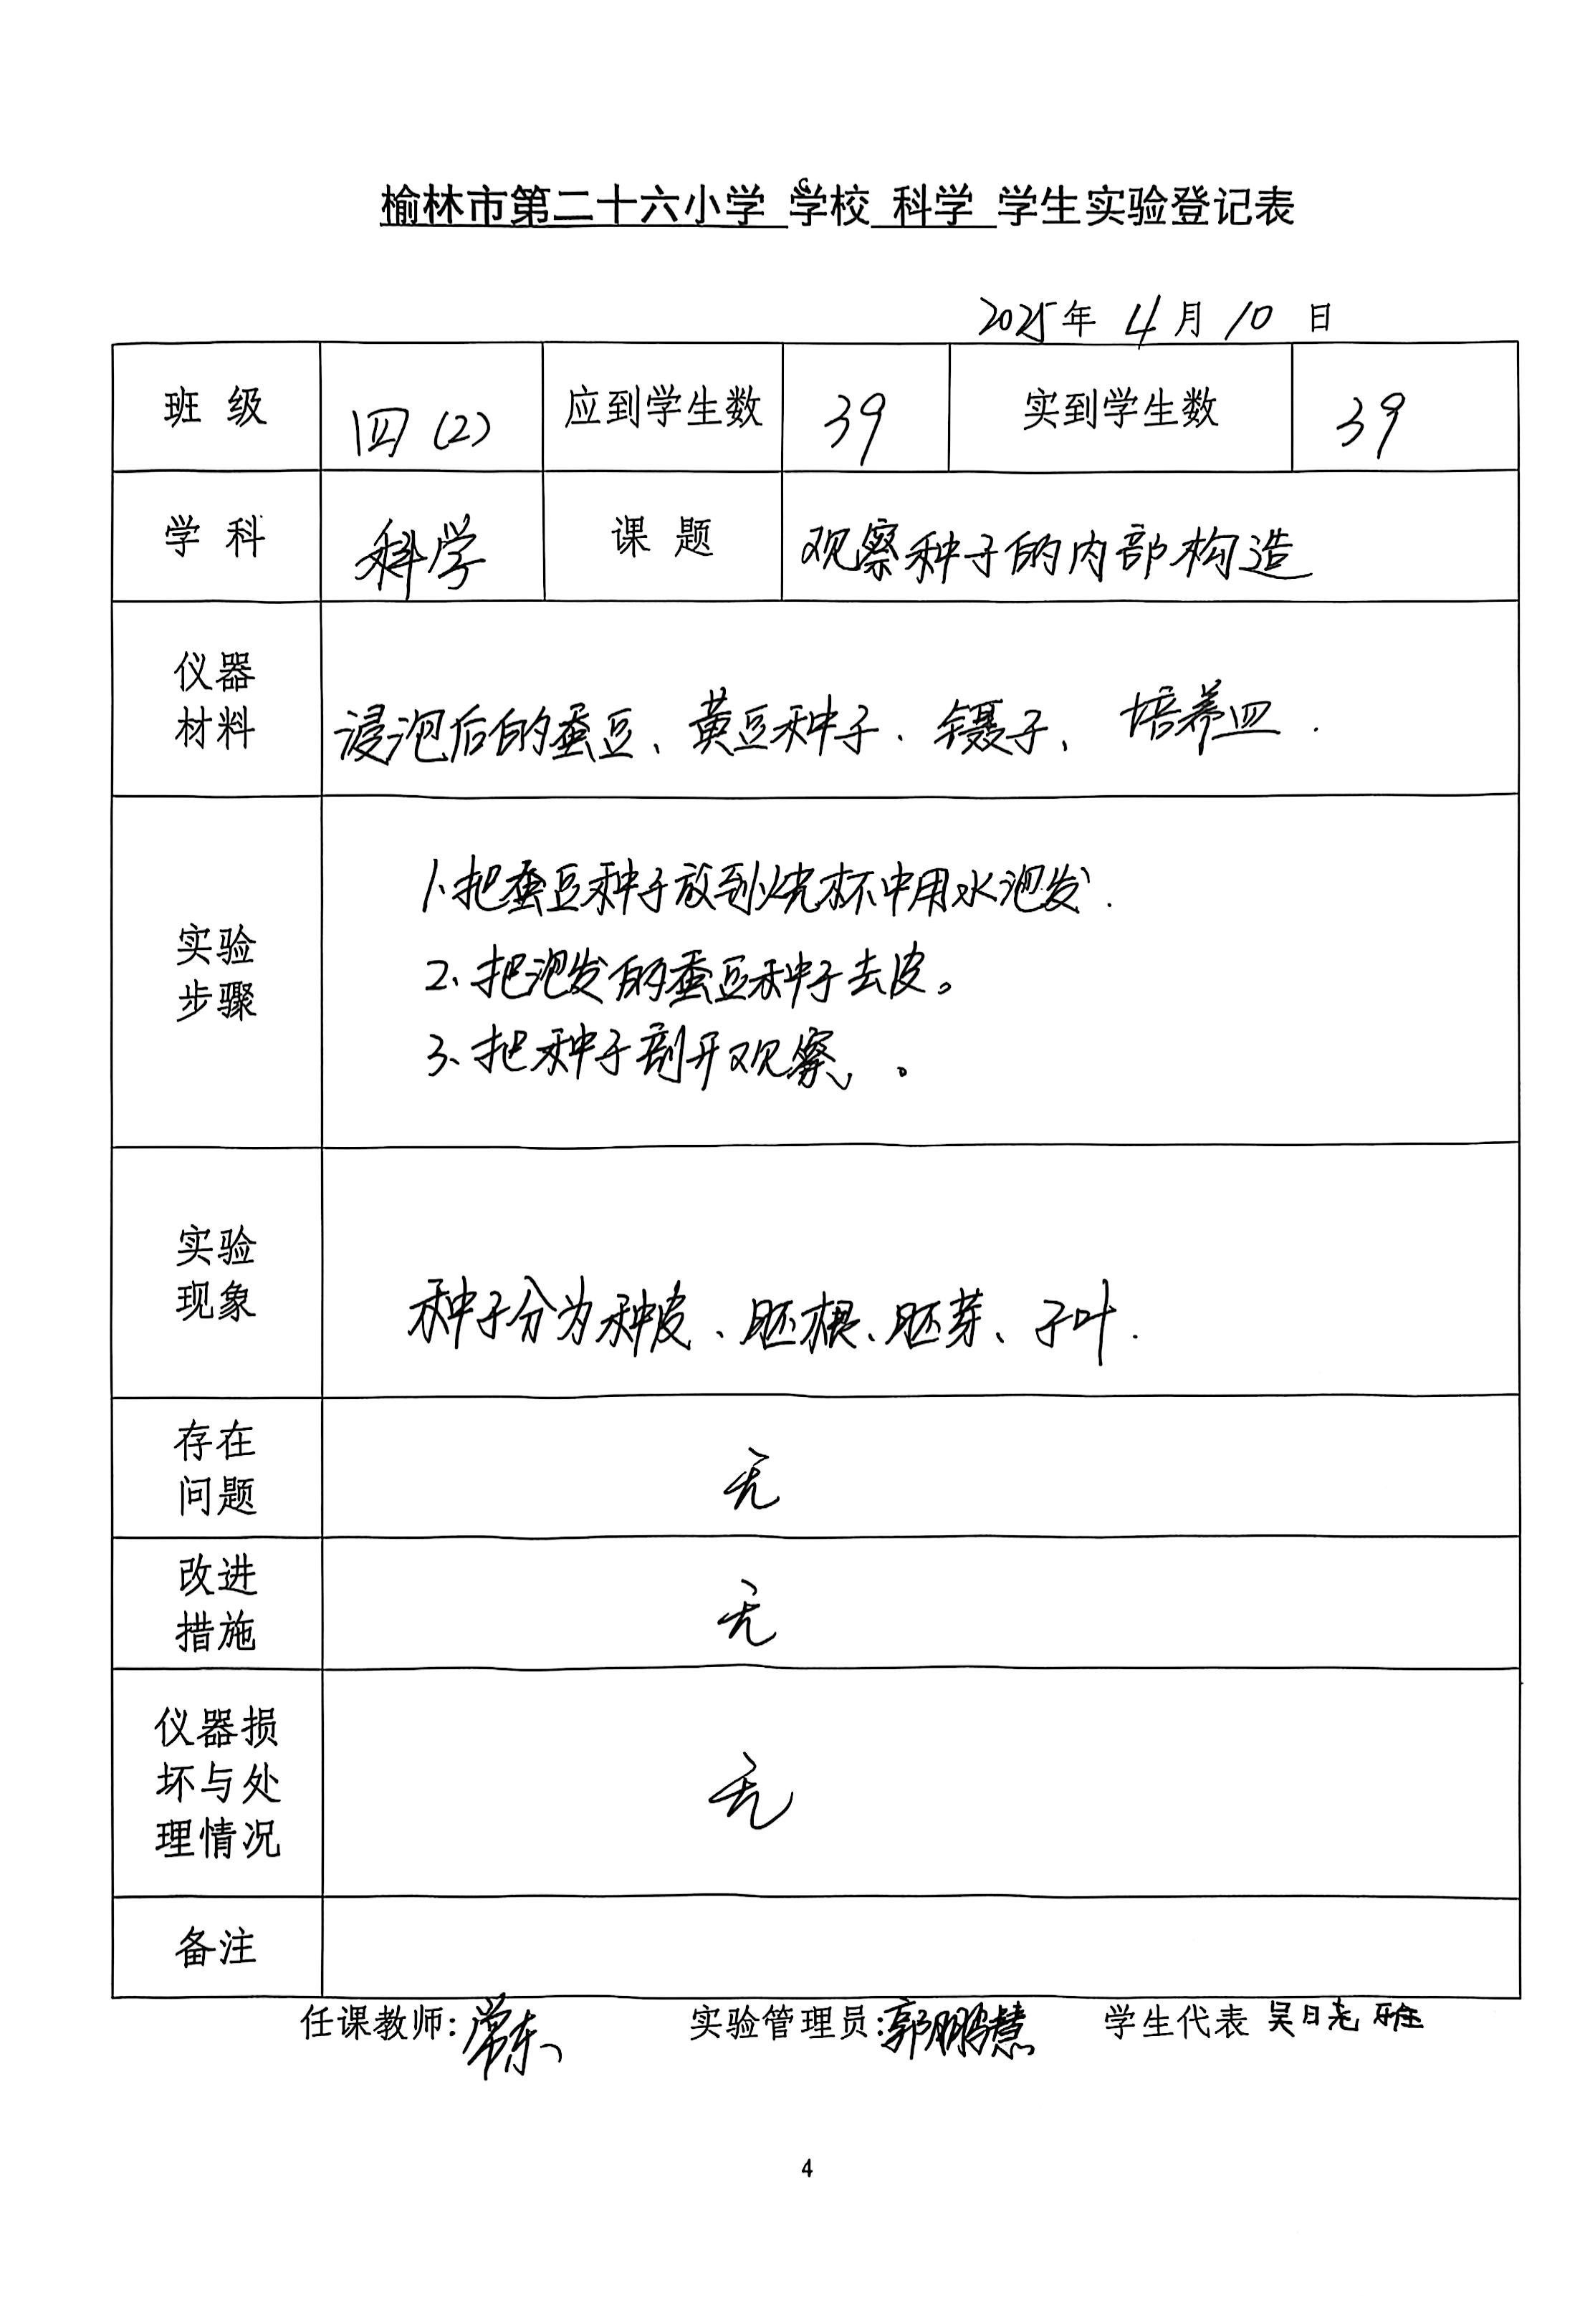 榆林市第二十六小学 学校 科学 学生实验登记表
2025年 4月10日
班级 四(2) 应到学生数 39 实到学生数 39
学科 科学 课题 观察种子的内部构造
仪器
材料
浸泡后的蚕豆、黄豆种子、镊子、培养皿.
实验
步骤
1.把蚕豆种子放到烧杯中用水泡发.
2、把泡发的蚕豆种子去皮。
3、把种子剖开观察。
实验
现象
种子分为种皮、胚根、胚芽、子叶.
存在
问题
无
改进
措施
无
仪器损
坏与处
理情况
无
备注
任课教师:常东 实验管理员:郭鹏慧 学生代表 吴日尧雅
4